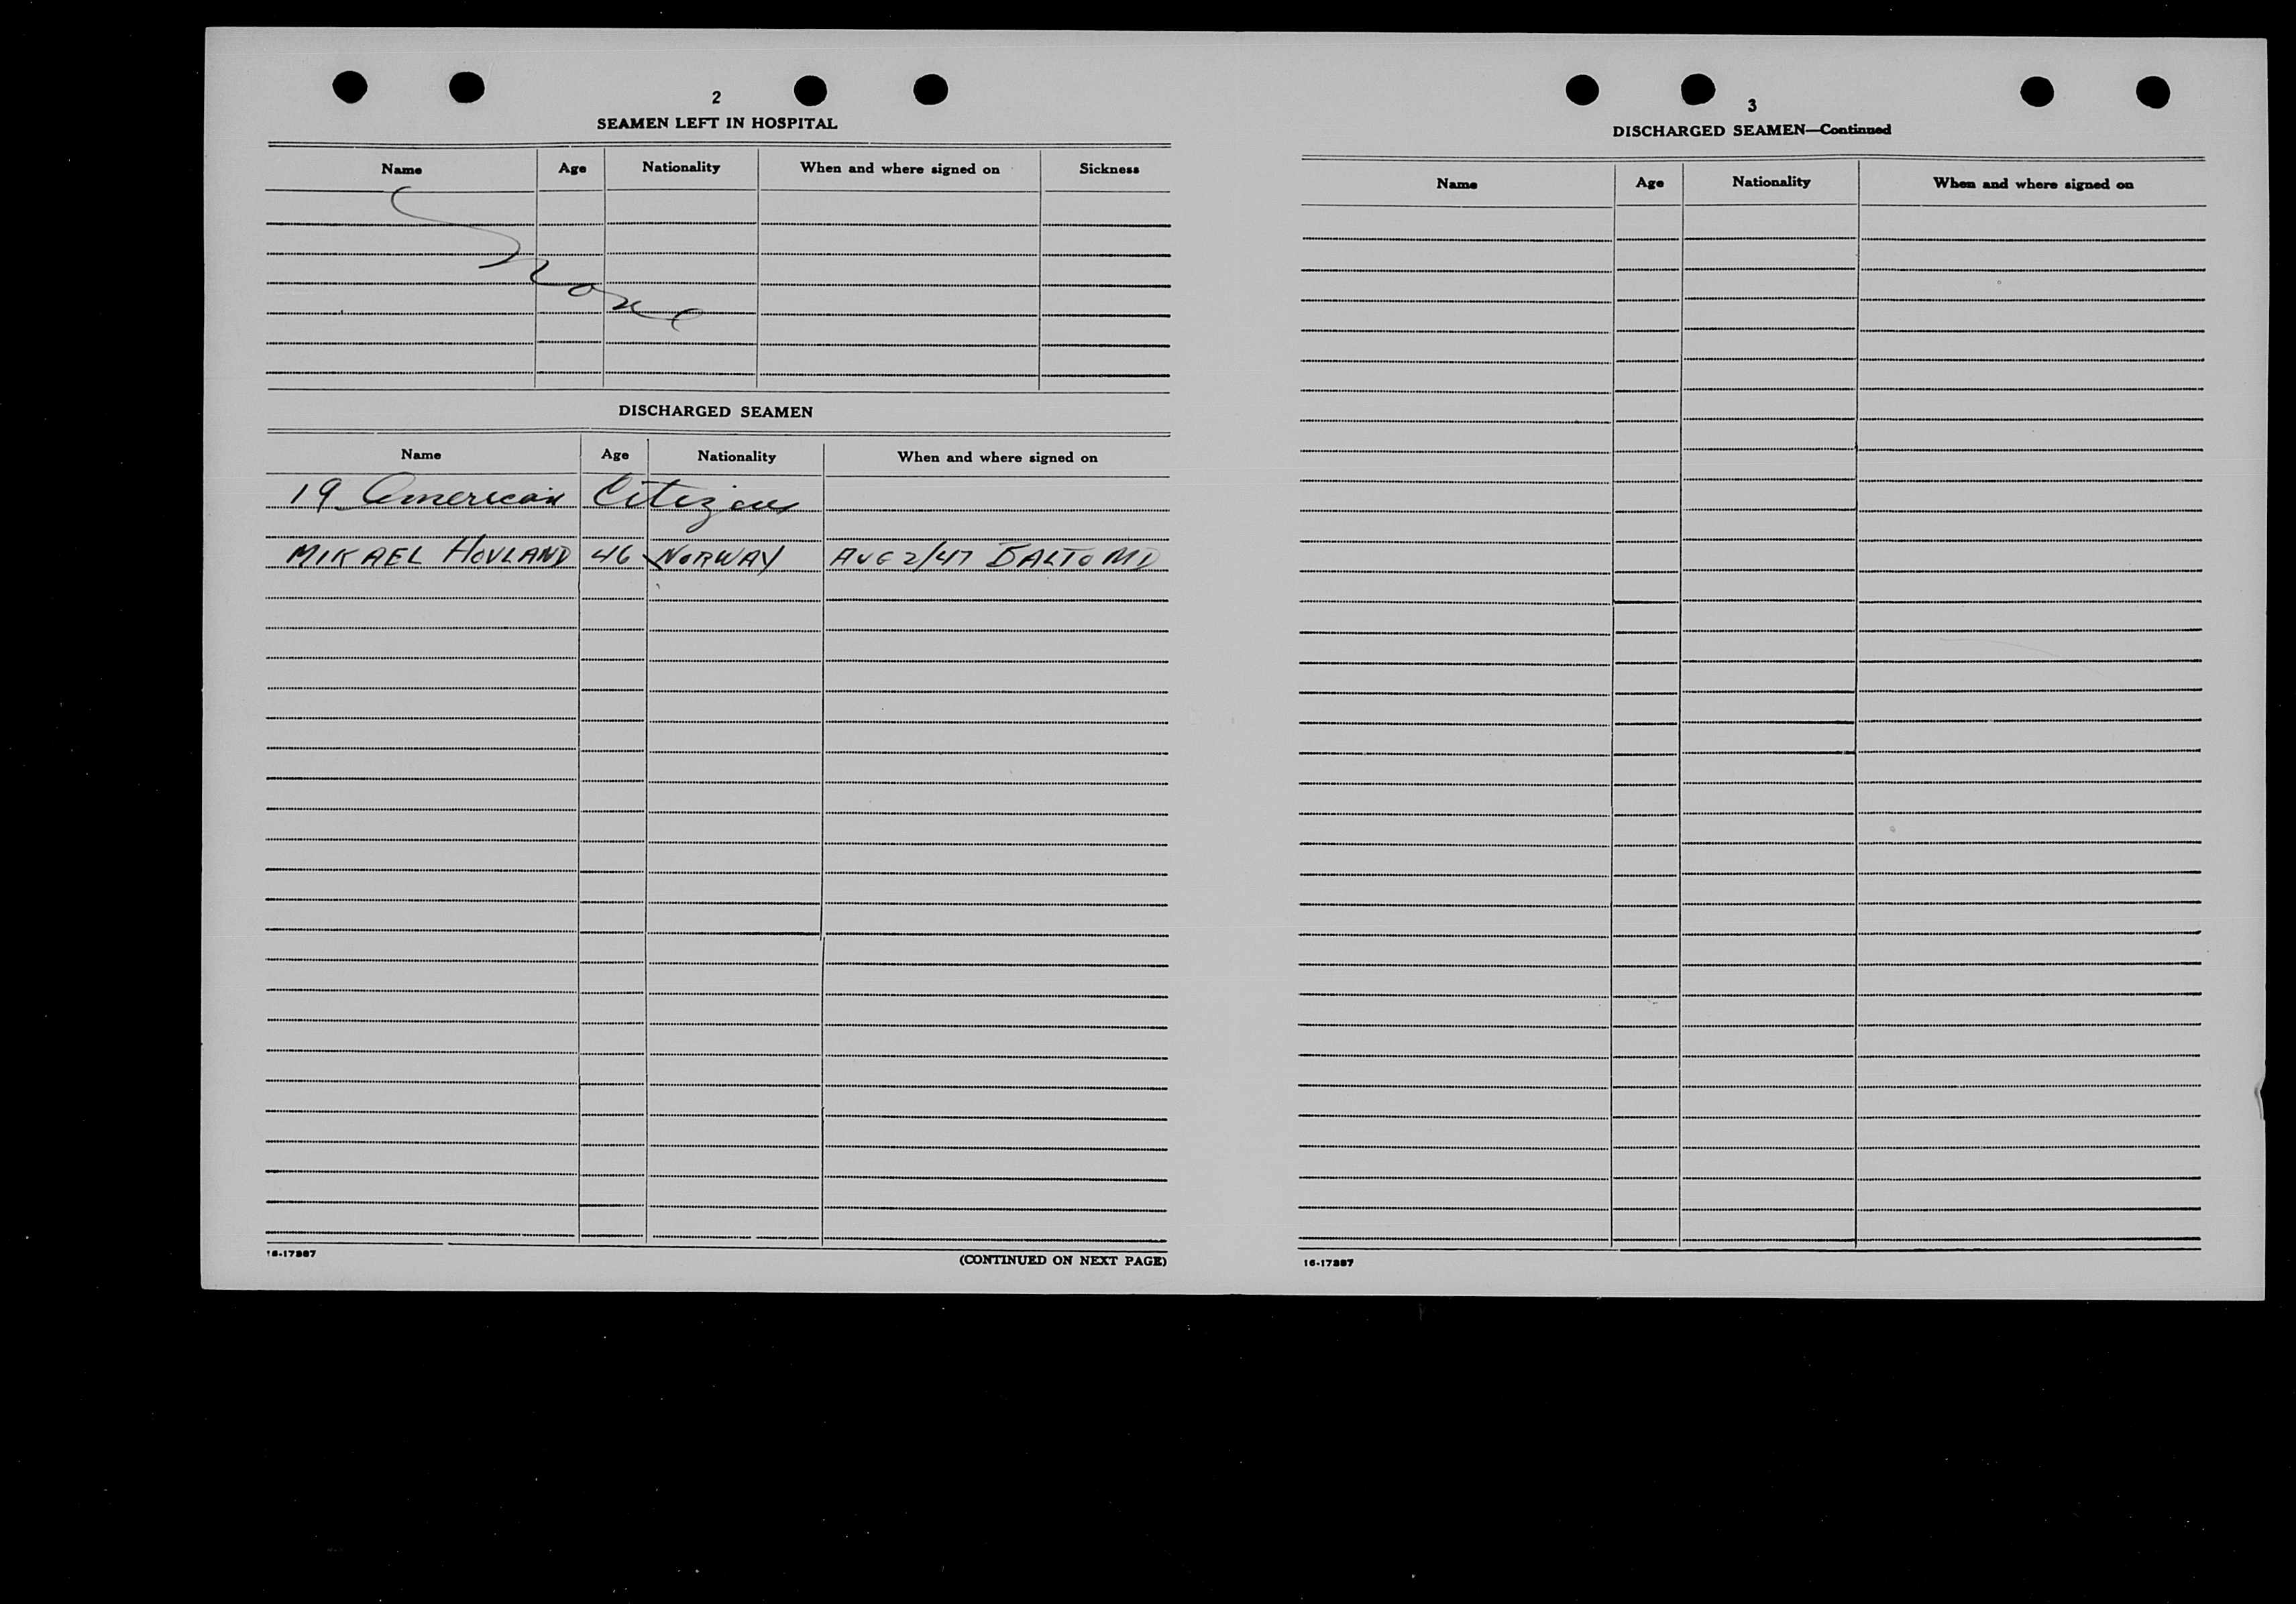 2
SEAMEN LEFT IN HOSPITAL
Name Age Nationality When and where signed on Sickness
None
DISCHARGED SEAMEN
Name Age Nationality When and where signed on
19 American Citizens
MIKAEL HOVLAND 46 NORWAY AUG 2/47 BALTO MD
16-17887 (CONTINUED ON NEXT PAGE)
3
DISCHARGED SEAMEN—Continued
Name Age Nationality When and where signed on
16-17887